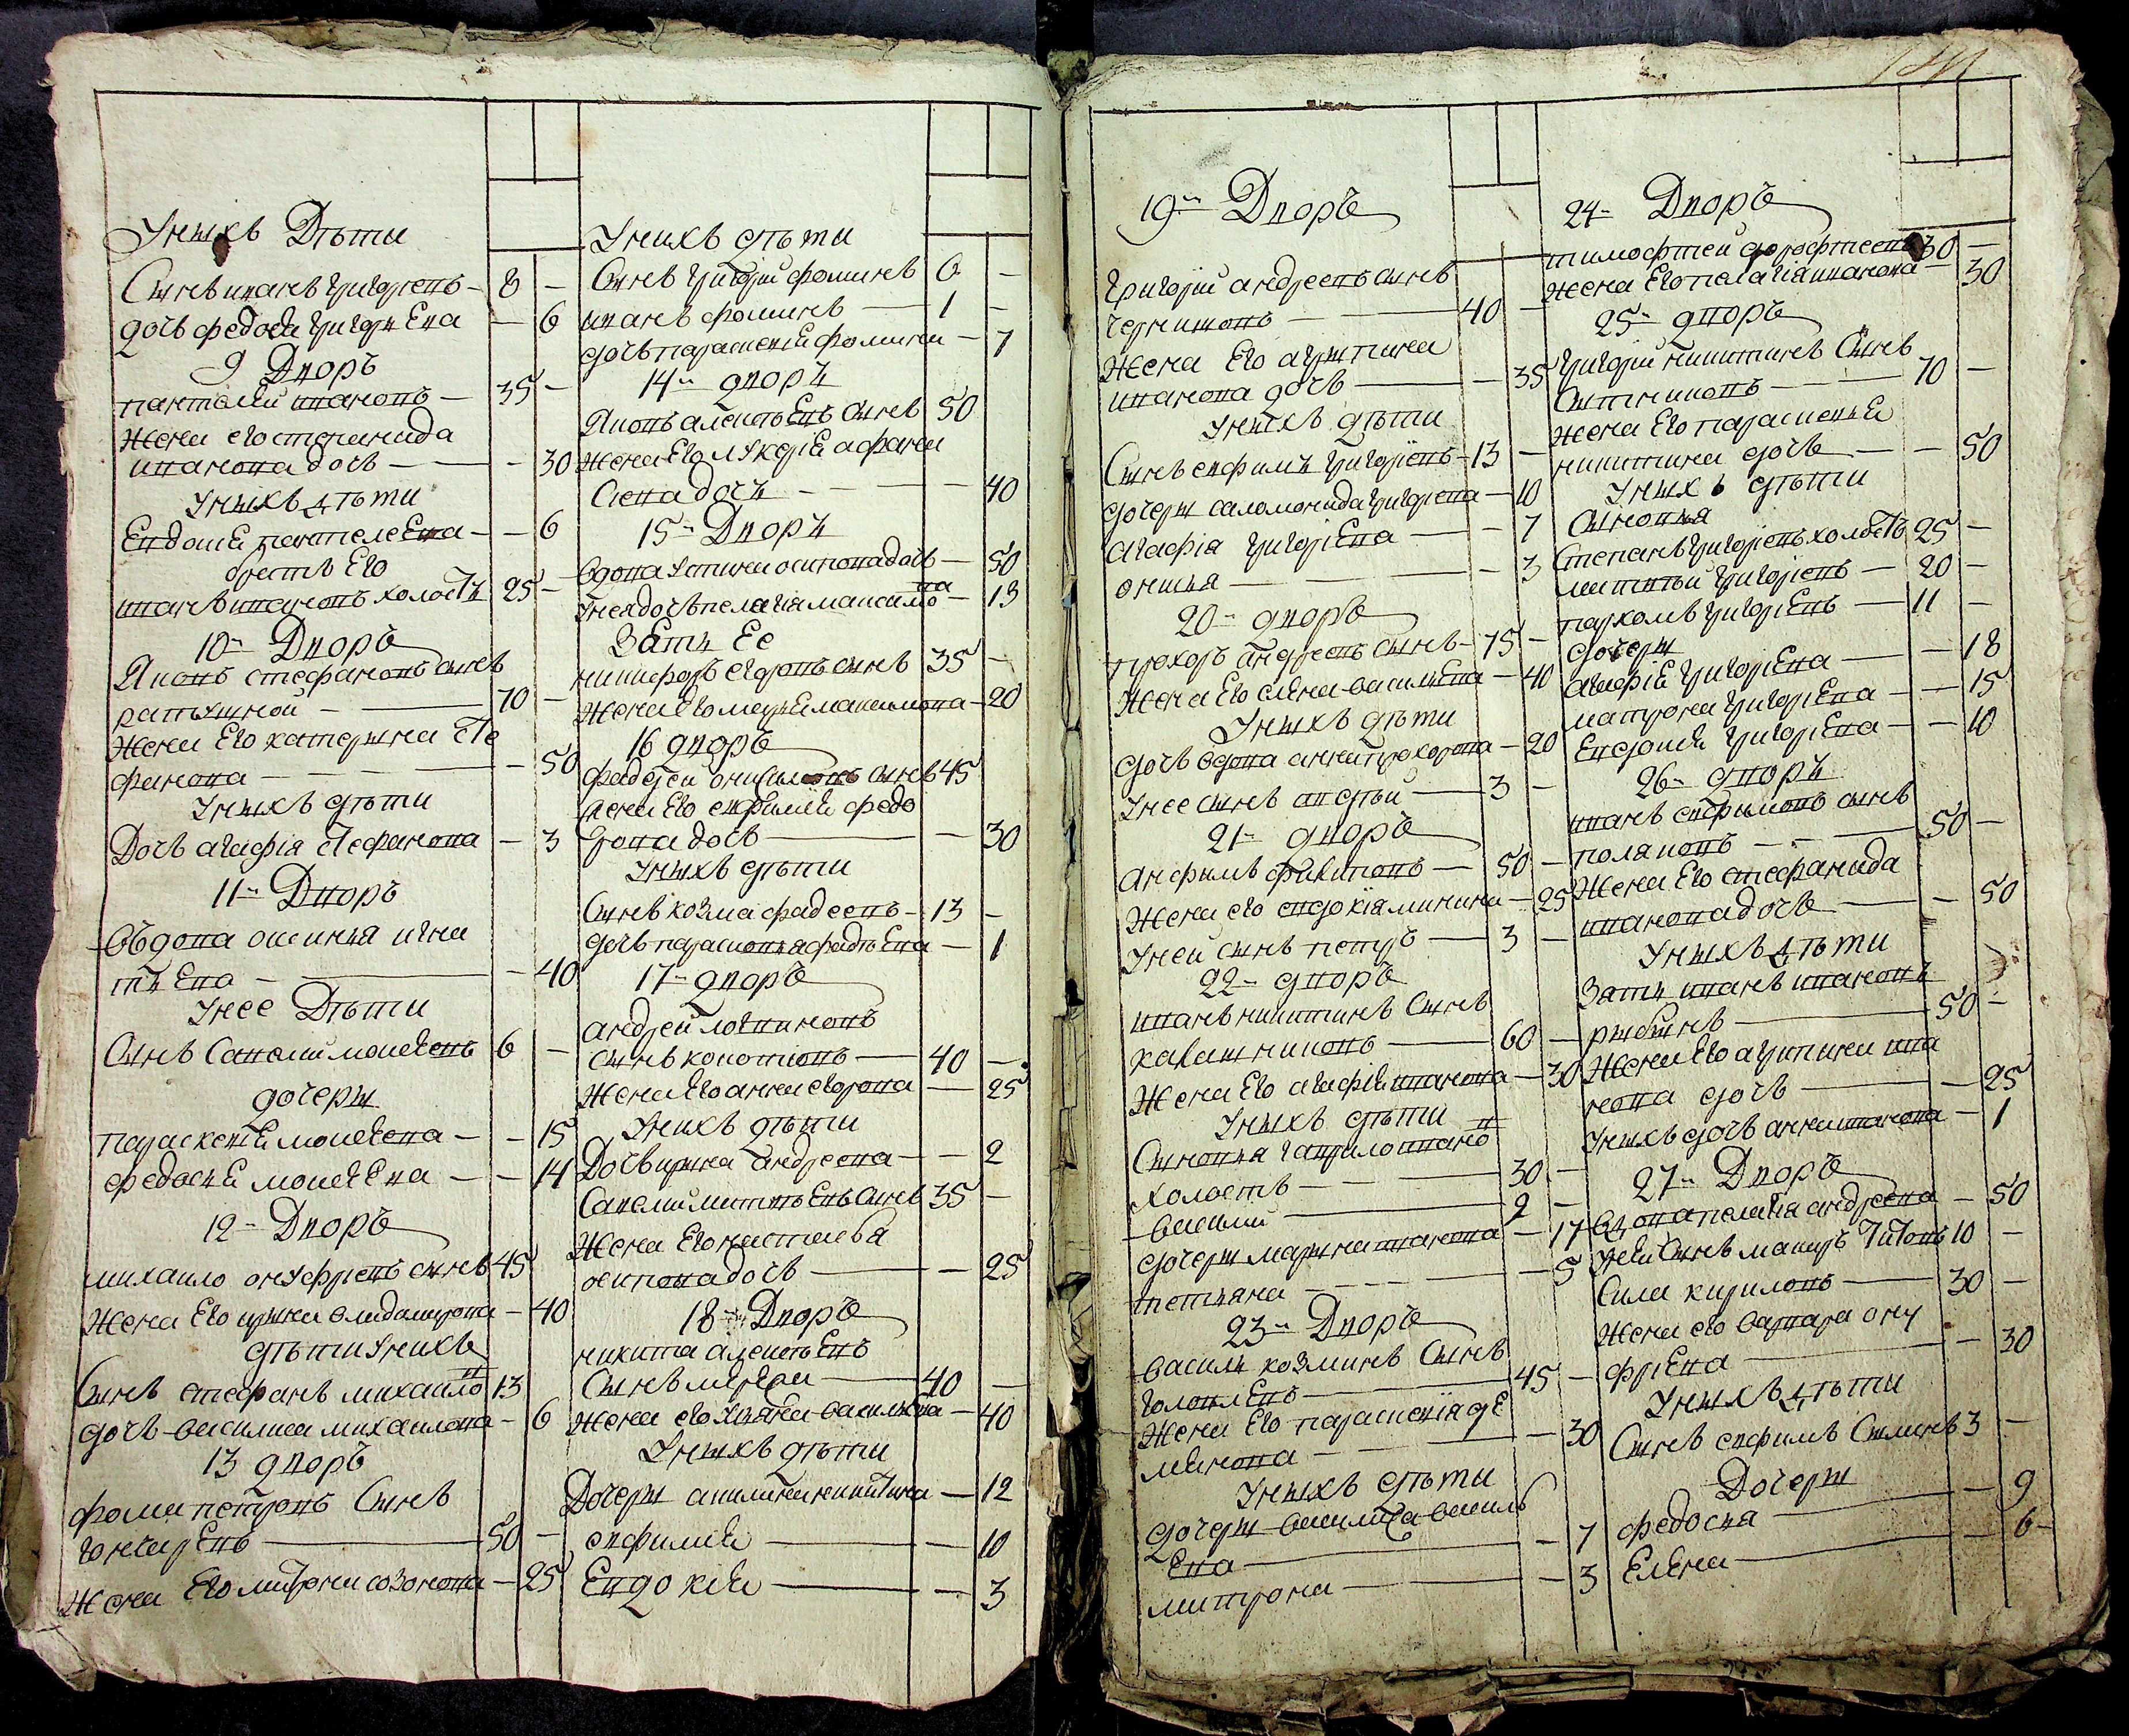 У нихъ Дѣти
Сынъ иванъ григорьевъ - 8 -
дочь федосia григорьева - 6
9 Дворъ
пантелей ивановъ - 35 -
жена его степанида
иванова дочь - 30
У нихъ дѣти
Евдокия пантелеева - - 6
братъ Его
иванъ ивановъ холостъ 25 -
10й Дворъ
Яковъ стефановъ сынъ
ратушной - 70 -
жена Его катерина сте
фанова - 50
У нихъ дѣти
Дочь агафія стефанова - 3
11й Дворъ
Въдова игна
тьева - 40
У нее Дѣти
Сынъ Савелий моисеевъ 6 -
дочери
параскевия моисеева - - 15
федосья моисеева - - 14
12й Дворъ
михаило онуфріевъ сынъ 45
Жена Его ирина - 40
дѣти у нихъ
Сынъ стефанъ михаиловъ 13
дочь василиса михаилова - 6
13 дворъ
фома петровъ Сынъ
гончаревъ - 50 -
Жена Его матрона созонова - 25
У нихъ дѣти
Сынъ григорий фоминъ 6 -
иванъ фоминъ - 1 -
дочь параскевия фомина - 7
14й дворъ
Яковъ алексѣевъ сынъ 50
жена Его лукерия афана
сиева дочь - 40
15й Дворъ
вдова устинья осипова дочь - 50
У нея дочь пелагия максимова - 13
Зять Ее
никифоръ егоровъ сынъ 35 -
Жена Его марья максимова - 20
16 дворъ
фадеей онисимовъ сынъ 45
жена Его евфимия федо
рова дочь - 30
У нихъ дѣти
Сынъ козма фадеевъ - 13 -
дочь парасковья фадѣева - 1
17й дворъ
андрей логвиновъ
сынъ коноплевъ - 40 -
Жена Его анна егорова - 25
У нихъ дѣти
Дочь ирина андреева - - 2
Савелий матвѣевъ Сынъ 35 -
Жена Его настасья
осипова дочь - 25
18й Дворъ
никита алексѣевъ
Сынъ - 40 -
жена его ульяна васильева - 40
У нихъ дѣти
Дочери акилина никитина - 12
евфимия - 10
Евдокия - 3
19й Дворъ
григорий андреевъ сынъ
черниковъ - 40 -
Жена Его агрипина
иванова дочь - 35
У нихъ дѣти
Сынъ евфимъ григориевъ - 13 -
дочери саломонида григорева - 10
агафия григориева - 7
онисья - 3
20й дворъ
прохоръ андреевъ сынъ - 75 -
Жена Его елена васильева - 40
У нихъ дѣти
дочь вдова анна прохорова - 20
У нее сынъ авдѣй - 3 -
21й дворъ
анфимъ филиповъ - 50 -
Жена его евдокия минина - 25
У ней сынъ петръ - 3 -
22й дворъ
иванъ никитинъ Сынъ
калашниковъ - 60 -
Жена Его агафия иванова - 30
У нихъ дѣти
Сыновья гаврило ивановъ
Холостъ - 30 -
василий - 9
дочери марина иванова - 17
тетьяна - 5
23й Дворъ
василь козминъ Сынъ
головлевъ - 45 -
Жена Его параскевия де
минова - 30
У нихъ дѣти
дочери василиса василь
Ева - 7
матрона - 3
24й Дворъ
тимофѣей дорофѣеевъ 30 -
жена Его пелагия иванова - 30
25й дворъ
григорий никитинъ Сынъ
Сытниковъ - 70 -
жена Его параскевия
никитина дочь - - 50
У нихъ дѣти
Сыновья
Степанъ григориевъ холостъ 25 -
матвѣй григориевъ - 20 -
пархомъ григориевъ - 11 -
дочери
агафия григориева - 18
матрона григориева - - 15
Евдокия григориева - - 10
26й дворъ
иванъ евфимовъ сынъ
поляковъ - 50 -
Жена Его стефанида
иванова дочь - 50
У нихъ дѣти
Зять иванъ ивановъ
рыбинъ - 50 -
Жена Его агрипина ива
нова дочь - 25
У нихъ дочь анна иванова - 1
27й Дворъ
вдова пелагия андреева - 50
У неи Сынъ макаръ Титовъ 10 -
Сила кириловъ - 30 -
Жена его варвара ону
фриева - 30
У нихъ дѣти
Сынъ евфимъ Силинъ 3 -
Дочери
федосья - 9
Елена - 6